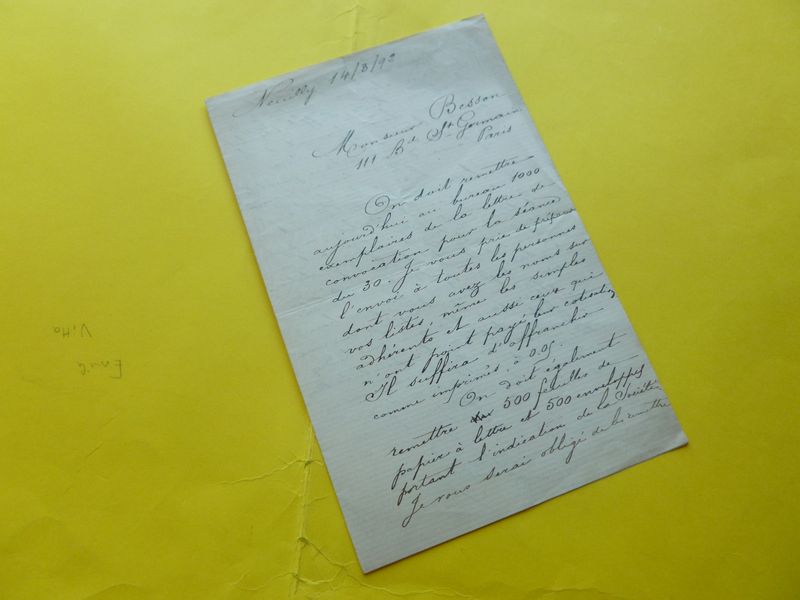 Neuilly 14/8/93
Monsieur Besson
111 Bd St Germain
Paris
On doit remettre
aujourd'hui au bureau 1000
exemplaires de la lettre de
convocation pour la séance
du 30. Je vous prie de préparer
l'envoi à toutes les personnes
dont vous avez les noms sur
vos listes, même les simples
adhérents et aussi ceux qui
n'ont point payé leur cotisation
Il suffira d'affranchir
comme imprimés, à 0.05.
On doit également
remettre 500 feuilles de
papier à lettre et 500 enveloppes
portant l'indication de la Société
Je vous serai obligé de les remettre
Emile